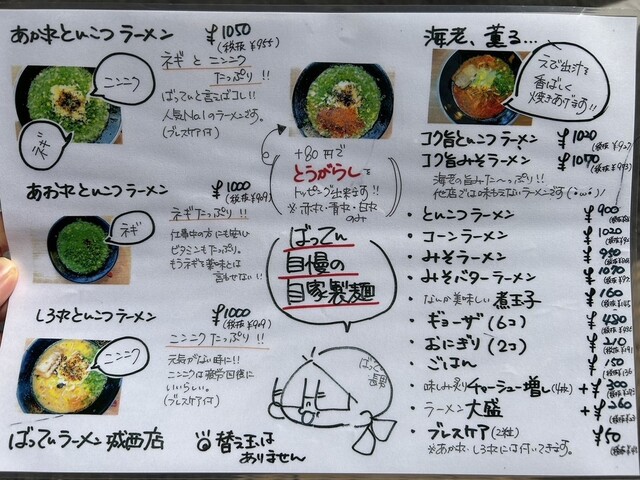 あか丸とんこつラーメン ¥1050
(税抜¥955)
ネギとニンニク
たっぷり!!
ばってんと言えばコレ!!
人気No.1のラーメンです。
(ブレスケア付)
ニンニク
ネギ
あお丸とんこつラーメン ¥1000
(税抜¥909)
ネギたっぷり!!
仕事中の方にも安心
ビタミンもたっぷり。
もうネギを薬味とは
言わせない!!
ネギ
しろ丸とんこつラーメン ¥1000
(税抜¥909)
ニンニクたっぷり!!
元気がない時に!!
ニンニクは疲労回復に
いいらしい。
(ブレスケア付)
ニンニク
ばってんラーメン城西店
替え玉は
ありません
+80円で
とうがらしを
トッピング出来ます!!
※赤丸・青丸・白丸
のみ
ばってん
自慢の
自家製麺
ばってん
長男
海老、薫る...
えび出汁を
香ばしく
焼きあげます!!
コク旨とんこつラーメン ¥1020
(税抜¥927)
コク旨みそラーメン ¥1070
(税抜¥973)
海老の旨みた〜っぷり!!
他店では味わえないラーメンです(・ω・)/
・とんこつラーメン ¥900
・コーンラーメン ¥1020
・みそラーメン ¥950
・みそバターラーメン ¥1070
・なんか美味しい煮玉子 ¥160
・ギョーザ(6コ) ¥480
・おにぎり(2コ) ¥210
・ごはん ¥150
・味しみ炙りチャーシュー増し(4枚) +¥300
・ラーメン大盛 +¥260
・ブレスケア(2粒) ¥60
※あか丸・しろ丸には付いてきます。